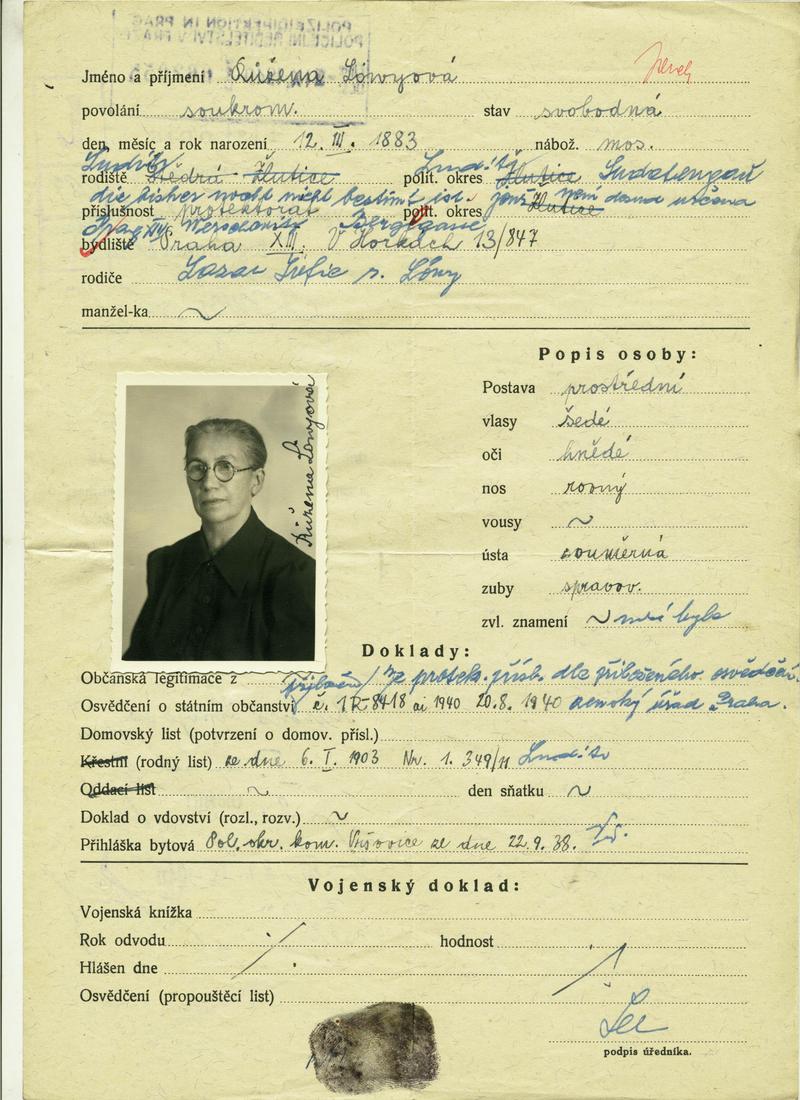 POLIZEIDIREKTION IN PRAG
POLICEJNÍ ŘEDITELSTVÍ V PRAZE
Jméno a příjmení Růžena Löwyová
povolání soukrom. stav svobodná
den, měsíc a rok narození 12. III. 1883 nábož. mos.
rodiště Štědrá Žlutice polit. okres Žlutice Sudetengau
die bisher noch nicht bestimt ist. není
příslušnost protektorát polit. okres Žlutice
Prag Berggasse
bydliště Praha XIII. V Horkách 13/847
rodiče Lazar r. Löwy
manžel-ka ~
Popis osoby:
Postava prostřední
vlasy šedé
oči hnědé
nos rovný
vousy ~
ústa souměrná
zuby spravov.
zvl. znamení ~
Růžena Löwyová
Doklady:
Občanská legitimace z protek. přísl. dle přiloženého osvědčení.
Osvědčení o státním občanství č. 1R-8418 ai 1940 20.8. 1940 zemský úřad Praha.
Domovský list (potvrzení o domov. přísl.)
Křestní (rodný list) ze dne 6. I. 1903 Nr. 1. 349/11
Oddací list ~ den sňatku ~
Doklad o vdovství (rozl., rozv.) ~
Přihláška bytová Pol. okr. kom. Vršovice ze dne 22.9. 38.
Vojenský doklad:
Vojenská knížka
Rok odvodu hodnost
Hlášen dne
Osvědčení (propouštěcí list)
podpis úředníka.